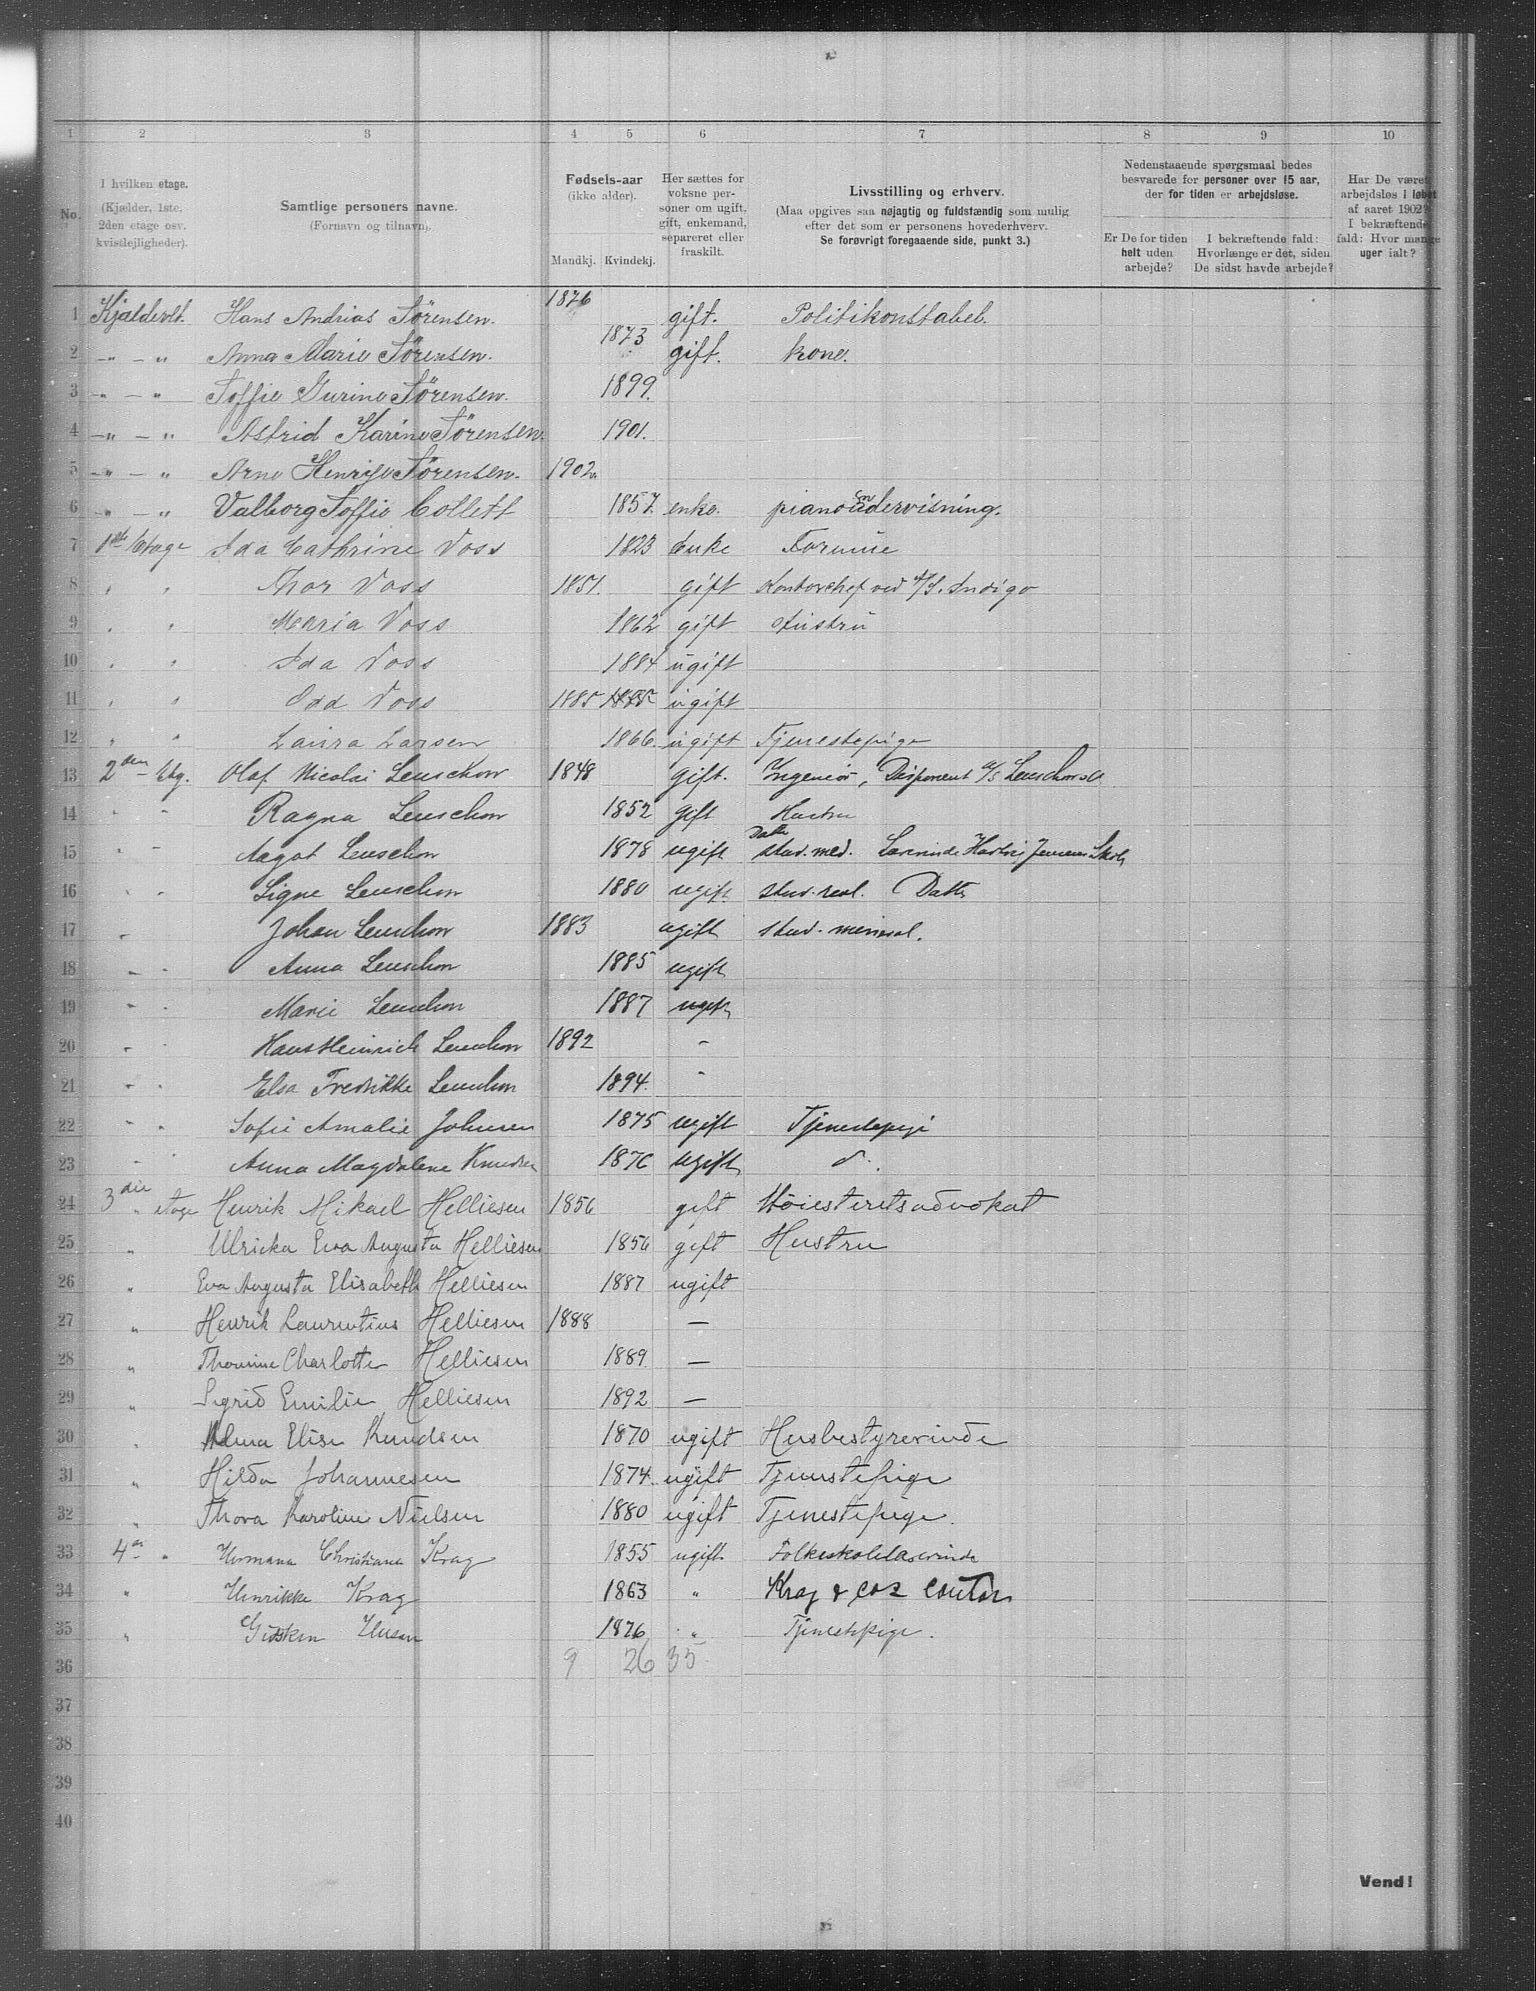 1 2 3 4 5 6 7 8 9 10
No.
I hvilken etage.
(Kjælder, 1ste.
2den etage osv.
kvistlejligheder).
Samtlige personers navne.
(Fornavn og tilnavn).
Fødsels-aar
(ikke alder).
Mandkj. Kvindekj.
Her sættes for
voksne per-
soner om ugift,
gift, enkemand,
separeret eller
fraskilt.
Livsstilling og erhverv.
(Maa opgives saa nøjagtig og fuldstændig som mulig
efter det som er personens hovederhverv.
Se forøvrigt foregaaende side, punkt 3.)
Nedenstaaende spørgsmaal bedes
besvarede for personer over 15 aar,
der for tiden er arbejdsløse.
Er De for tiden
helt uden
arbejde?
I bekræftende fald:
Hvorlænge er det, siden
De sidst havde arbejde?
Har De været
arbejdsløs i løbet
af aaret 1902?
I bekræftende
fald: Hvor mange
uger ialt?
1 Hans Andrias Sørensen. 1876 gift. Politikonstabel.
2 -"- " Anna Marie Sørensen. 1873 gift. kone.
3 -"- " Soffie Gurine Sørensen. 1899.
4 -"- " Astrid Karine Sørensen. 1901.
5 -"- " Arne Sørensen. 1902
6 -"- " Valborg Soffie Collett 1857. enke. pianoundervisning.
7 1ste Etage Ida Cathrine Voss 1823 Enke Formue
8 " " Thor Voss 1851. gift Kontorchef ved A/S. Indigo
9 " " Maria Voss 1862 gift Hustru
10 " " Ida Voss 1884 ugift
11 " " Odd Voss 1885 1885 ugift
12 " " Laura Larsen 1866. ugift Tjenestepige
13 2den Etg. Olaf Nicolai Leuschow 1848 gift. Ingeniør, Disponent A/S
14 " " Ragna Leuschow 1852 gift Hustru
15 " " Aagot Leuschow 1878 ugift Datter stud. med.
16 " " Signe Leuschow 1880 ugift stud. real. Datter
17 " Johan Leuschow 1883 ugift stud. mineral.
18 " " Anna Leuschow 1885 ugift
19 " " Marie Leuschow 1887 ugift
20 " " Hans Heinrich Leuschow 1892 -
21 " " Elsa Fredrikke Leuschow 1894. -
22 " " Sofie Amalie Johnsen 1875 ugift Tjenestepige
23 " " Anna Magdalene Knudsen 1876 ugift do.
24 3die " etage Henrik Mikael Helliesen 1856 gift Høiesteretsadvokat
25 " Ulricka Eva Augusta Helliesen 1856 gift Hustru
26 " Eva Augusta Elisabeth Helliesen 1887 ugift
27 " Henrik Laurentius Helliesen 1888 —
28 " Thomine Charlotte Helliesen 1889. —
29 " Sigrid Emilie Helliesen 1892 —
30 " Alma Elise Knudsen 1870 ugift Husbestyrerinde
31 " Hilda Johannesen 1874. ugift Tjenestepige
32 " Thora Karoline Nielsen 1880 ugift Tjenestepige.
33 4de " Hermana Christiana Krag 1855 ugift. Folkeskolelærerinde
34 " Henrikke Krag 1863 " Krag & Cos Contor
35 " Gidsken 1876 " Tjenestepige.
36 9 26 35
37
38
39
40
Vend!